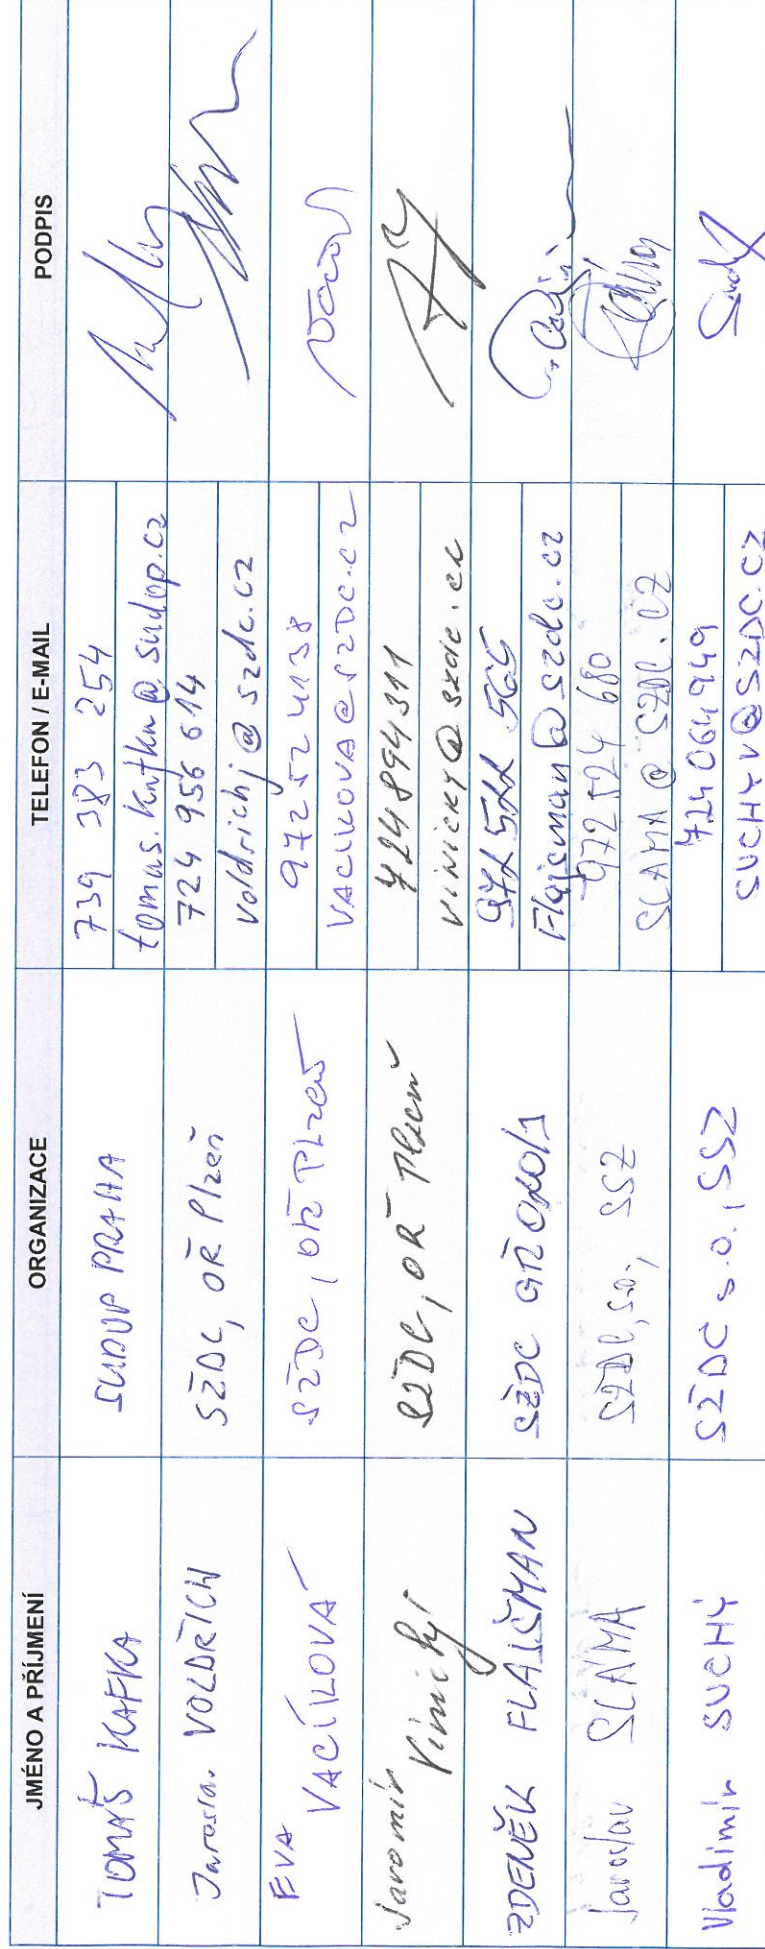 JMÉNO A PŘÍJMENÍ ORGANIZACE TELEFON / E-MAIL PODPIS
TOMÁŠ KAFKA SUDOP PRAHA 739 383 254
tomas.kafka@sudop.cz
Jarosla. VOLDŘICH SŽDC, OŘ Plzeň 724 956 614
voldrichj@szdc.cz
EVA VACÍKOVÁ SŽDC, OŘ PLZEŇ 97252 4138
VACIKOVA@SZDC.CZ
Jaromír Vinický SŽDC, OŘ Plzeň 724894311
VINICKY@szdc.cz
ZDENĚK FLAJŠMAN SŽDC GŘ 972 522 565
Flajsman@szdc.cz
Jaroslav SLÁMA SŽDC, s.o., SSZ 972 524 680
SLAMA@SZDC.CZ
Vladimír SUCHÝ SŽDC s.o., SSZ 724064949
SUCHYV@SZDC.CZ